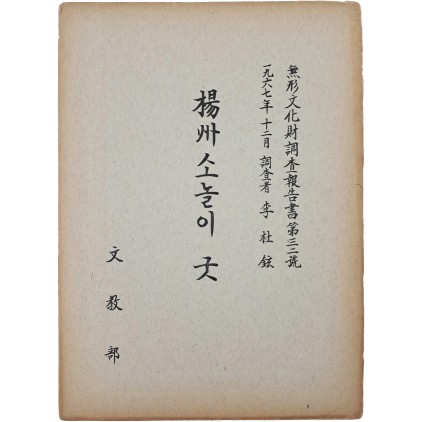 無形文化財調査報告書第三二號
一九六七年 十二月 調査者 李 杜 鉉
楊州 소놀이 굿
文 教 部